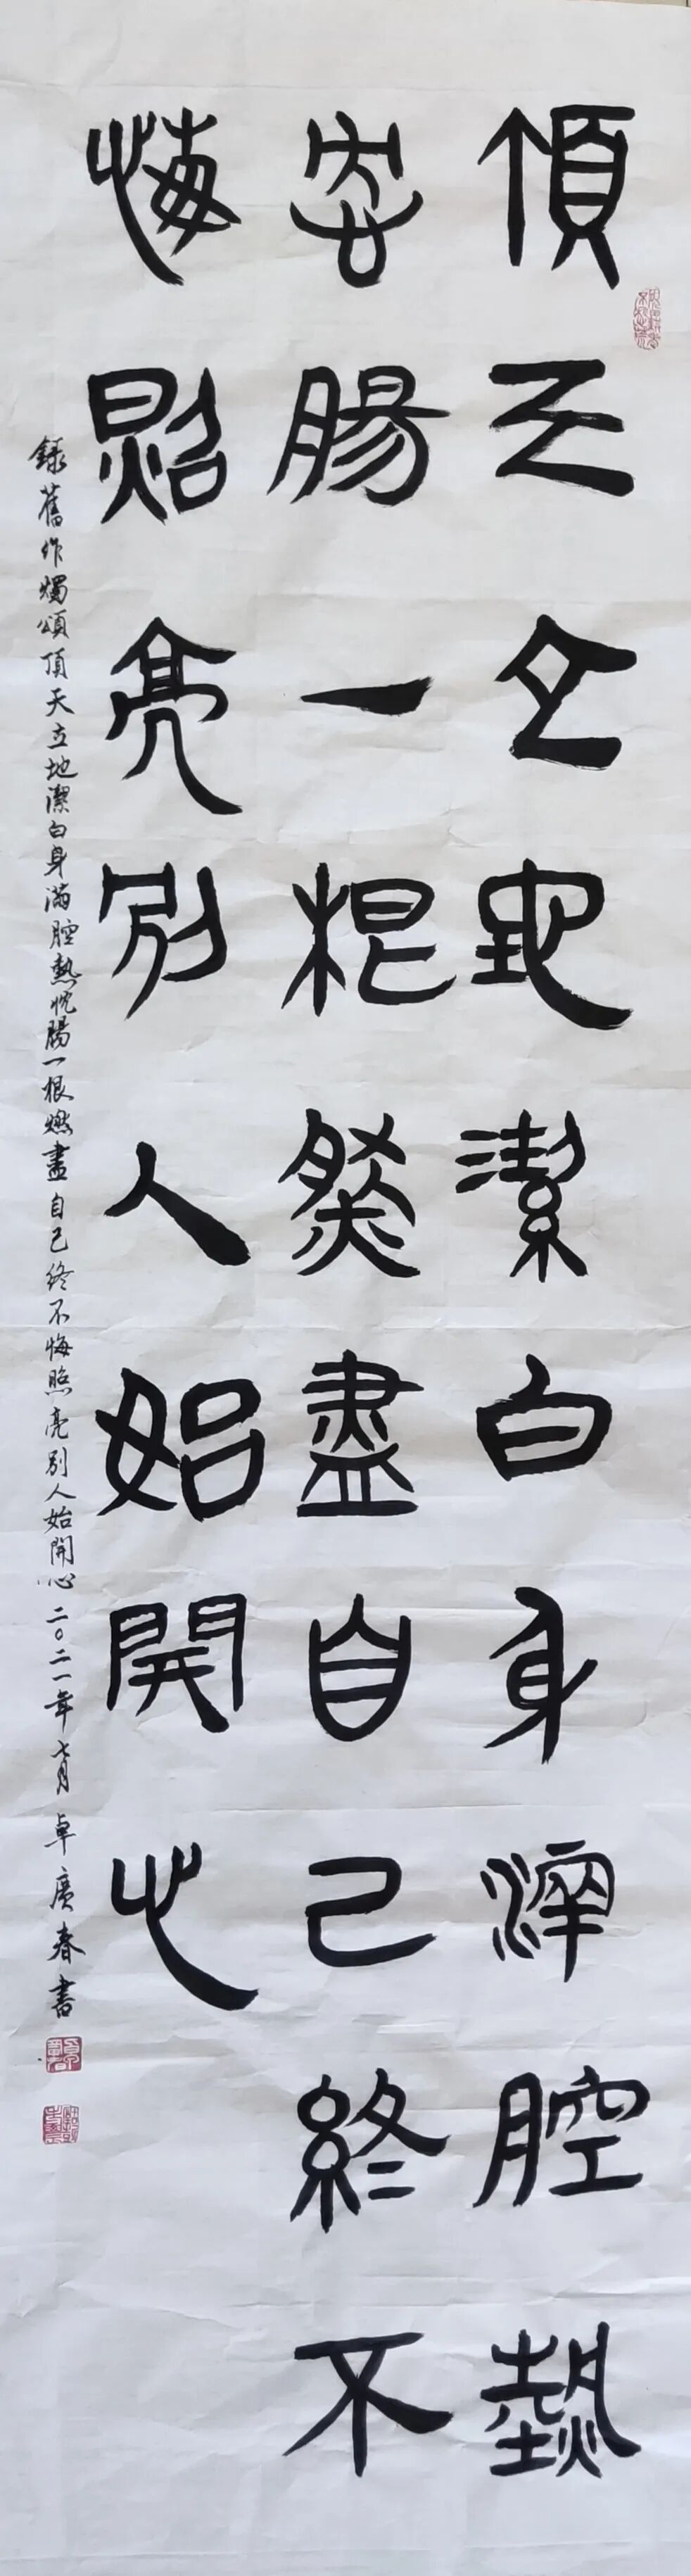 頂天立地潔白身滿腔熱
忱腸一根燃盡自己終不
悔照亮別人始開心
錄舊作燭頌頂天立地潔白身滿腔熱忱腸一根燃盡自己終不悔照亮別人始開心二〇二一年七月卓廣春書